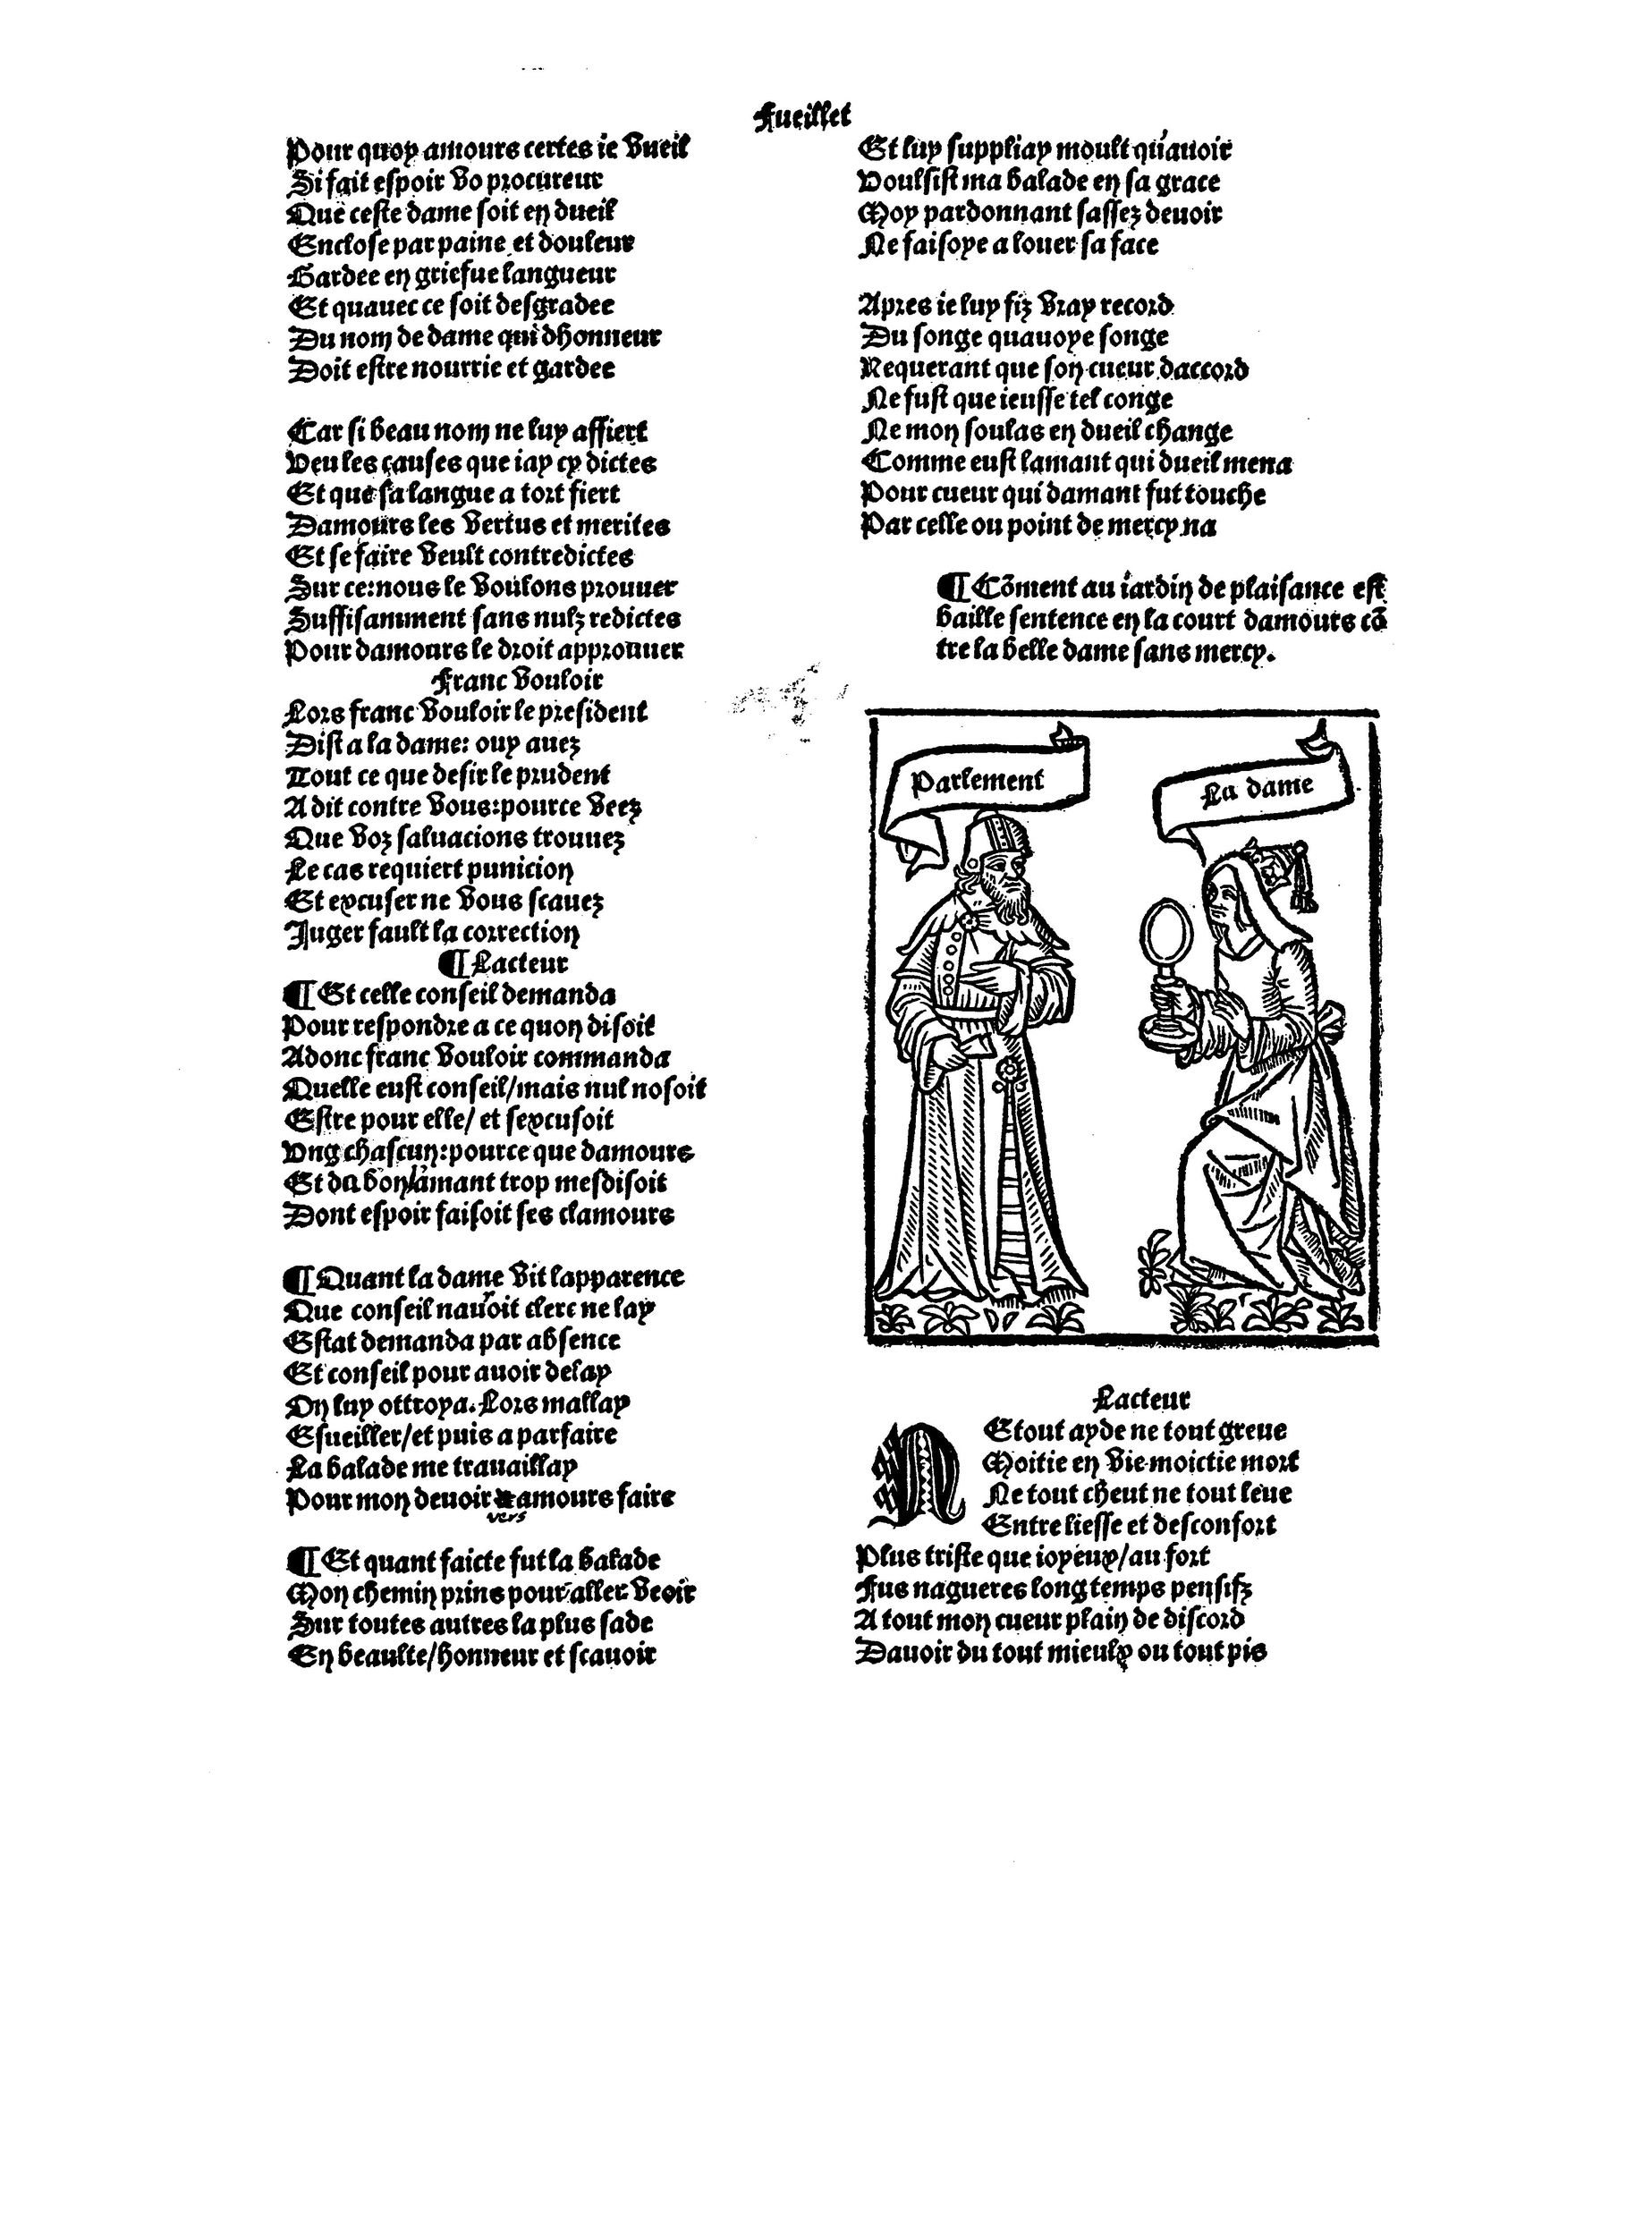 Fueillet
Pour quoy amours certes ie vueil
Si fait espoir vo procureur
Que ceste dame soit en dueil
Enclose par paine et douleur
Gardee en griefue langueur
Et quauec ce soit desgradee
Du nom de dame qui dhonneur
Doit estre nourrie et gardee
Car si beau nom ne luy affiert
Veu les causes que iay cy dictes
Et que sa langue a tort fiert
Damours les vertus et merites
Et se faire veult contredictes
Sur ce: nous le voulons prouuer
Suffisamment sans nulz redictes
Pour damours le droit approuuer
Franc vouloir
Lors franc vouloir le president
Dist a la dame: ouy auez
Tout ce que desir le prudent
A dit contre vous: pource veez
Que voz saluacions trouuez
Le cas requiert punicion
Et excuser ne vous scauez
Juger fault la correction
¶ Lacteur
¶ Et celle conseil demanda
Pour respondre a ce quon disoit
Adonc franc vouloir commanda
Quelle eust conseil/mais nul nosoit
Estre pour elle/ et sexcusoit
Vng chascun: pource que damours
Et da bon lamant trop mesdisoit
Dont espoir faisoit ses clamours
¶ Quant la dame vit lapparence
Que conseil nauoit clerc ne lay
Estat demanda par absence
Et conseil pour auoir delay
On luy ottroya. Lors mallay
Esueiller/et puis a parfaire
La balade me trauaillay
Pour mon deuoir amours faire
vers
¶ Et quant faicte fut la balade
Mon chemin prins pour aller veoir
Sur toutes autres la plus sade
En beaulte/honneur et scauoir
Et luy suppliay moult qu'auoir
Voulsist ma balade en sa grace
Moy pardonnant sassez deuoir
Ne faisoye a louer sa face
Apres ie luy fiz vray record
Du songe quauoye songe
Requerant que son cueur daccord
Ne fust que ieusse tel conge
Ne mon soulas en dueil change
Comme eust lamant qui dueil mena
Pour cueur qui damant fut touche
Par celle ou point de mercy na
¶ Cõment au iardin de plaisance est
baille sentence en la court damours cõ
tre la belle dame sans mercy.
Parlement
La dame
Lacteur
NE tout ayde ne tout greue
Moitie en vie moictie mort
Ne tout cheut ne tout leue
Entre liesse et desconfort
Plus triste que ioyeux/au fort
Fus nagueres long temps pensifz
A tout mon cueur plain de discord
Dauoir du tout mieulx ou tout pis